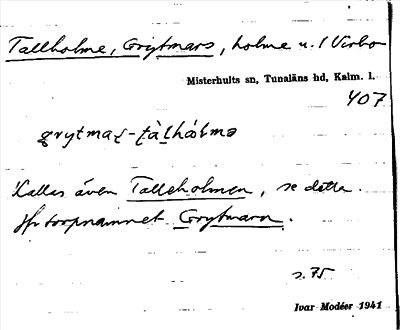 Tallholme, Grytmars, holme u. / Virbo
Misterhults sn, Tunaläns hd, Kalm. l.
407
grytmaʂ-tàlhólmə
Kallas även Talleholmen, se detta.
Jfr torpnamnet Grytmarn.
s. 75
Ivar Modéer 1941